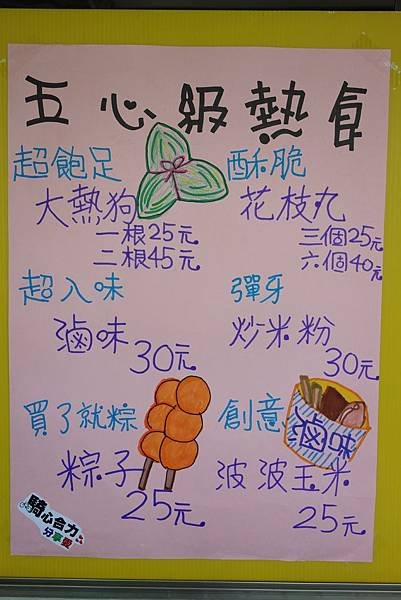 五心級熱食
超飽足
大熱狗
一根25元
二根45元
酥脆
花枝丸
三個25元
六個40元
超入味
滷味
30元
彈牙
炒米粉
30元
買了就粽
粽子
25元
創意
滷味
波波玉米
25元
騎心合力
分享愛